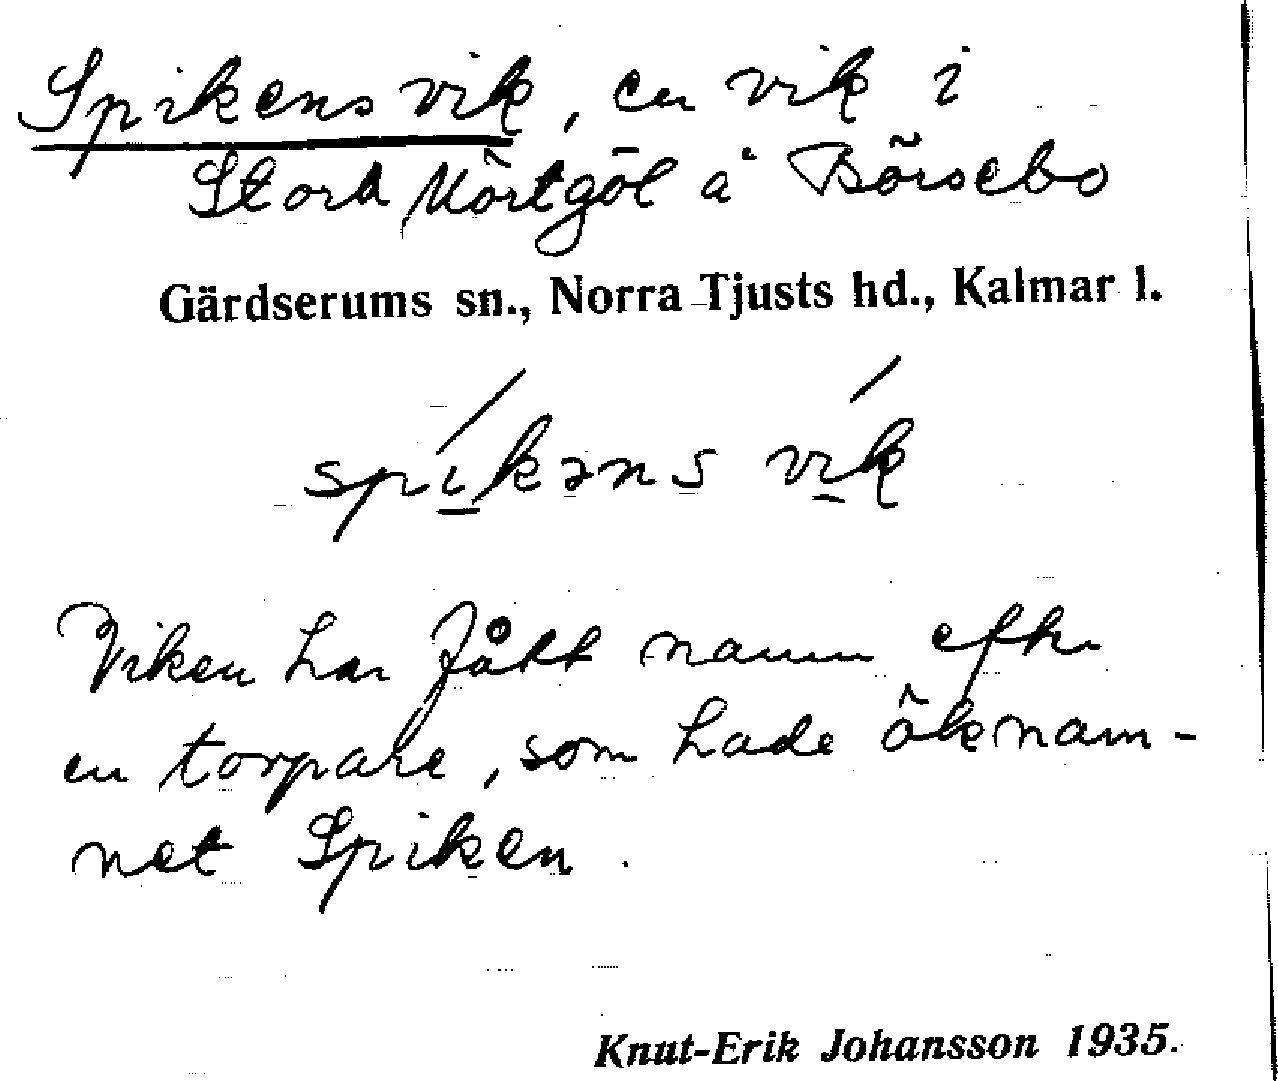 Spikens vik, en vik i
Stora Mörtgöl å Börsebo
Gärdserums sn., Norra Tjusts hd., Kalmar l.
spíkəns vik
Viken har fått namn efter
en torpare, som hade öknam-
net Spiken.
Knut-Erik Johansson 1935.